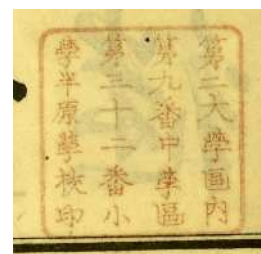 第二大學區内
第九番中學區
第三十二番小
學半原學校印